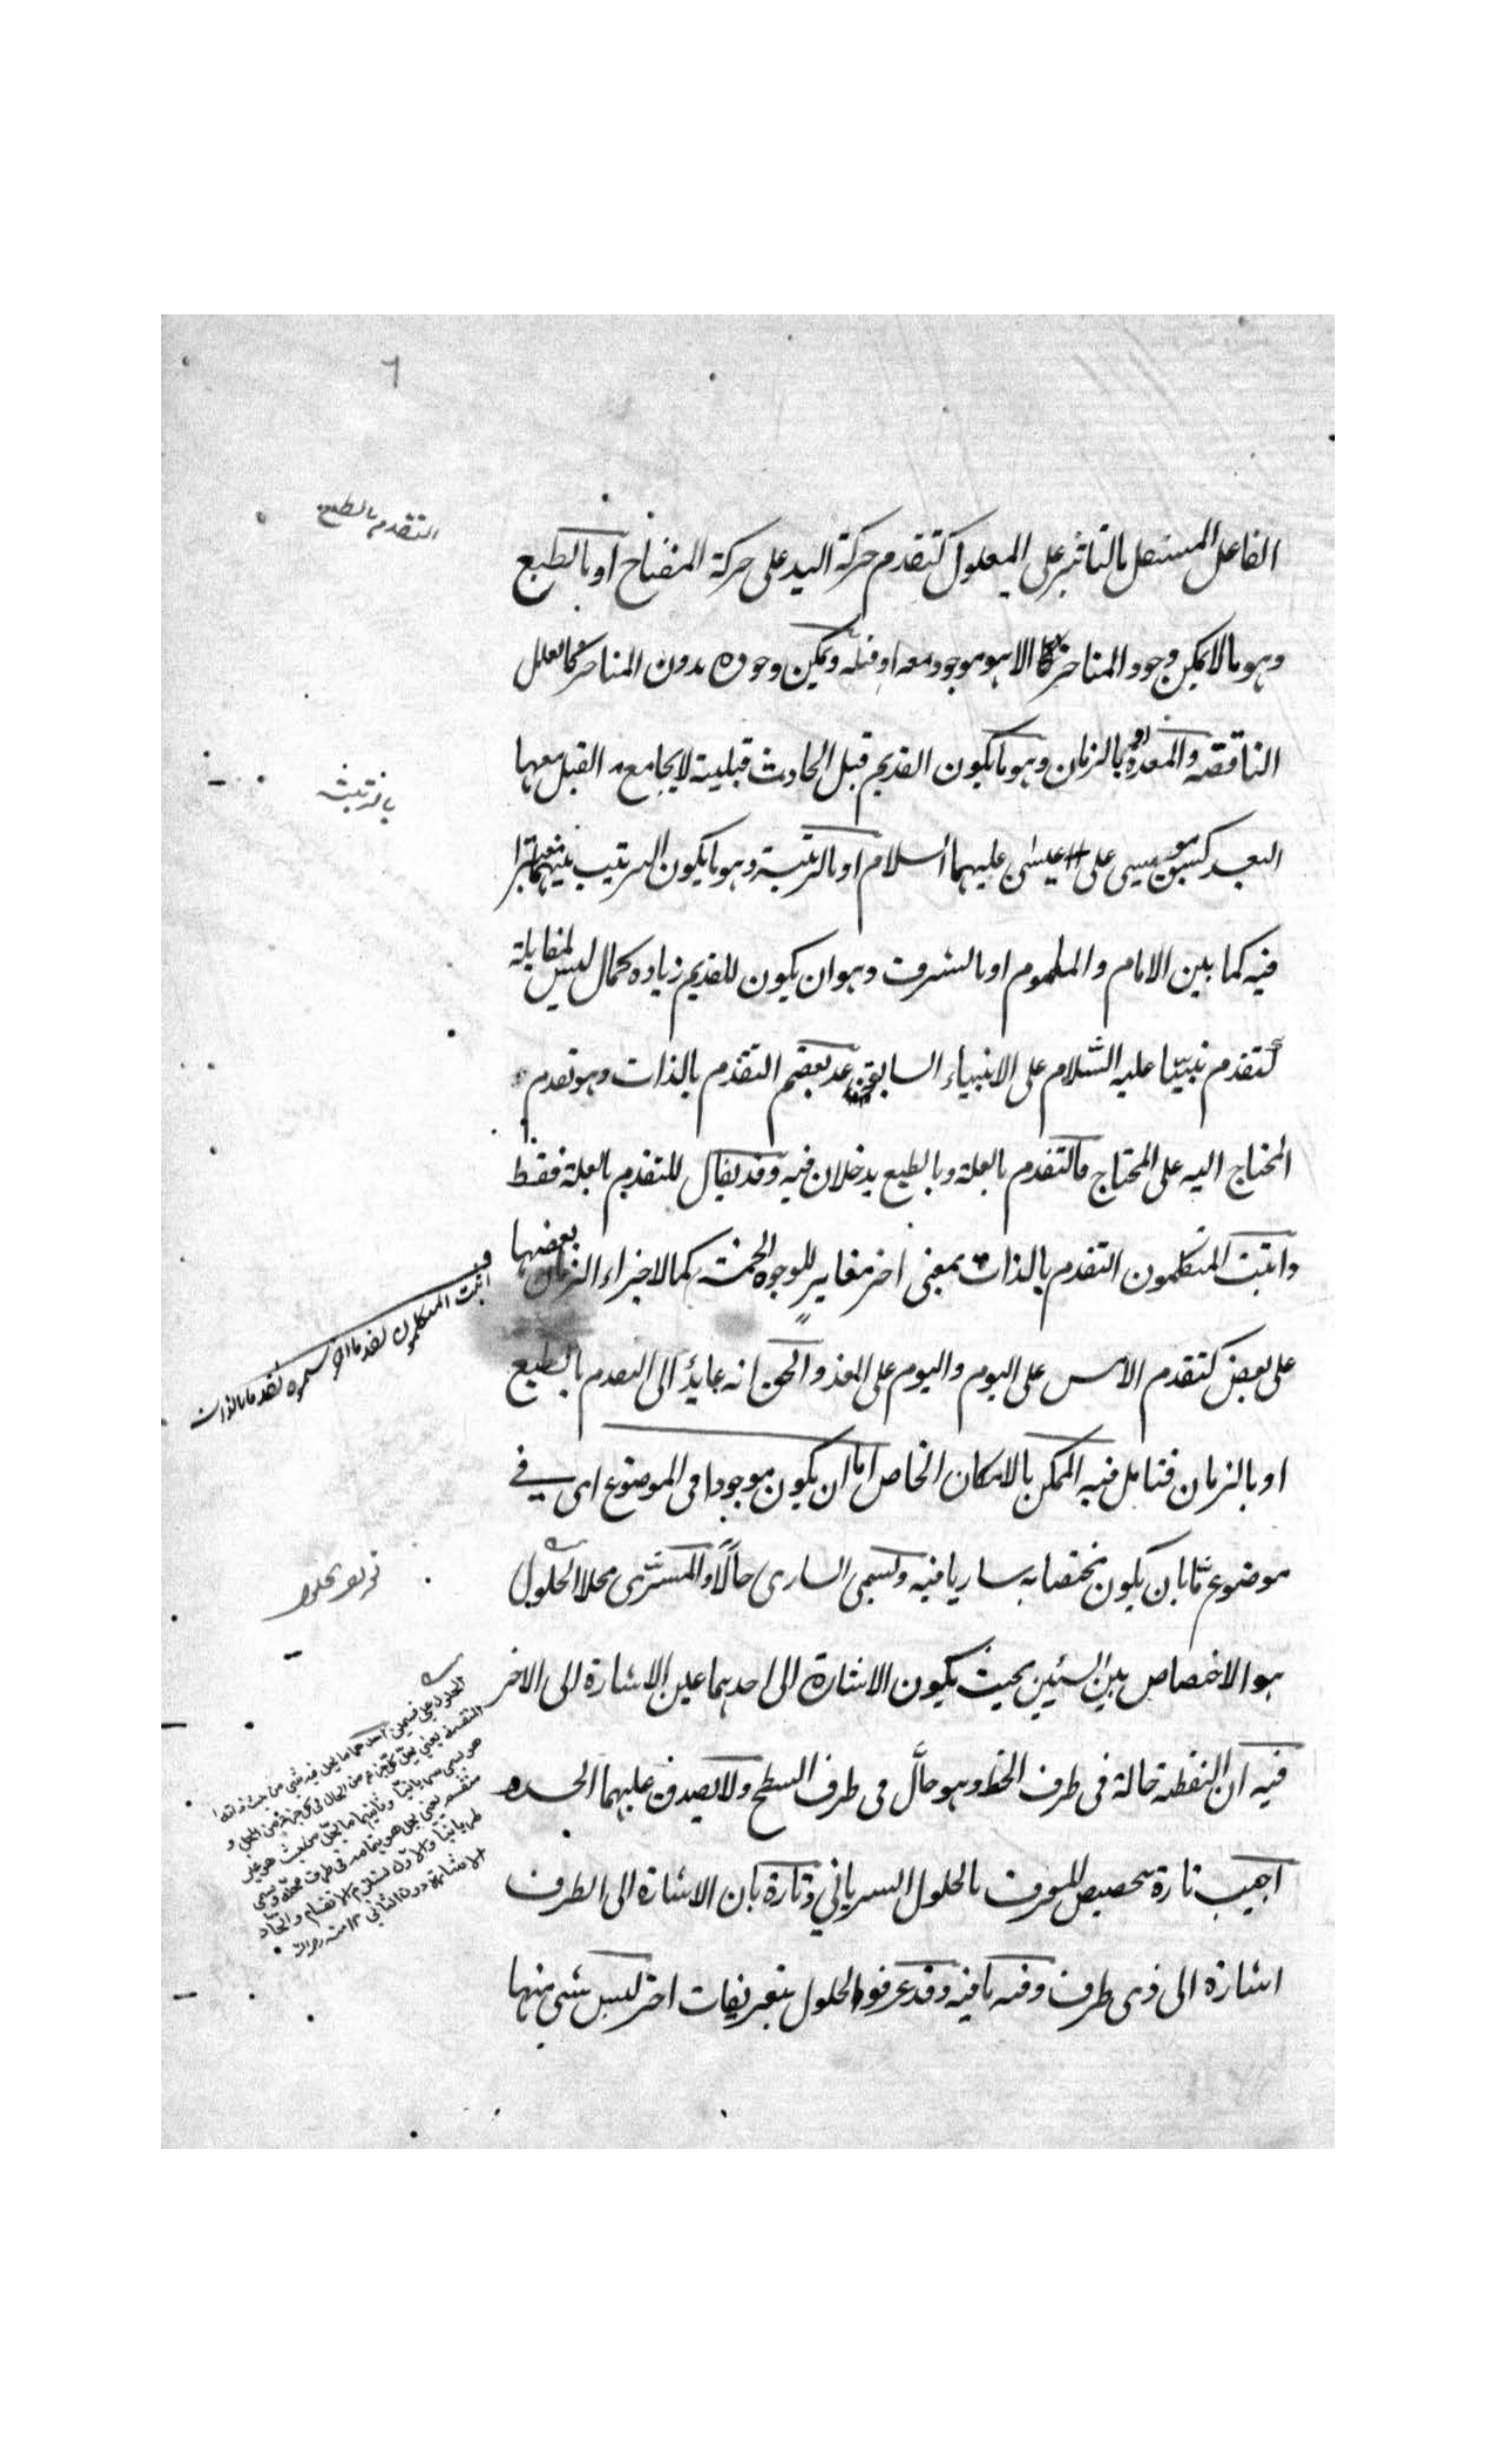 ٦
التقدم بالطبع
الفاعل المستقل بالتاثير على المعلول كتقدم حركة اليد على حركة المفتاح او بالطبع
وهو ما لا يمكن وجود المتاخر الا هو موجود معه او قبله ويمكن وجوده بدون المتاخر كالعلل
الناقصة والمعدة او بالزمان وهو ما يكون القديم قبل الحادث قبلية لا يجامع القبل معها
بالرتبة
البعد كسبق موسى على عيسى عليهما السلام او بالرتبة وهو ما يكون الترتيب بينهما معتبرا
فيه كما بين الامام والماموم او بالشرف وهو ان يكون للقديم زيادة كمال ليس لمقابله
كتقدم نبينا عليه السلام على الانبياء السابقين عد بعضهم التقدم بالذات وهو تقدم
المحتاج اليه على المحتاج فالتقدم بالعلة وبالطبع يدخلان فيه وقد يقال للتقدم بالعلة فقط
واثبت المتكلمون التقدم بالذات بمعنى اخر مغاير للوجوه الخمسة كما لاجزاء الزمان بعضها
اثبت المتكلمون تقدما اخر سموه تقدما بالذات
على بعض كتقدم الامس على اليوم واليوم على الغد والحق انه عايد الى التقدم بالطبع
او بالزمان فتامل فيه الممكن بالامكان الخاص اما ان يكون موجودا فى الموضوع اى فى
موضوع ما بان يكون مختصا به ساريا فيه ويسمى السارى حالا والمسرى محلا الحلول
تعريف حلول
هو الاختصاص بين الشيئين بحيث يكون الاشارة الى احدهما عين الاشارة الى الاخر
فيه ان النقطة حالة فى طرف الخط وهو حال فى طرف السطح ولا يصدق عليهما الحد
اجيب تارة بتخصيص المعرف بالحلول السرياني وتارة بان الاشارة الى الطرف
اشارة الى ذى طرف وفيه ما فيه وقد عرفوا الحلول بتعريفات اخر ليس شئ منها
الحلول على قسمين احدهما ما يحل فيه شئ من حيث ذاته